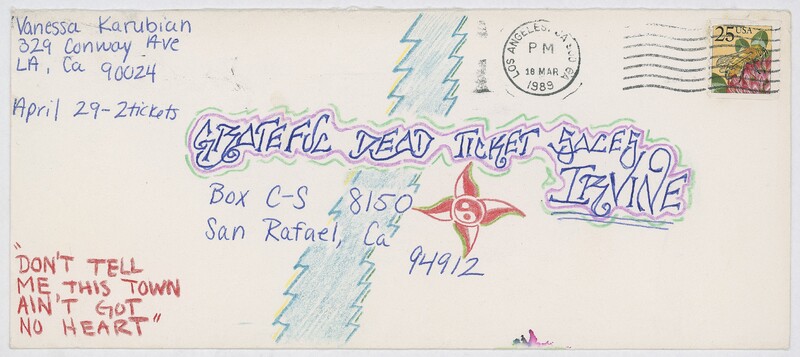 Vanessa Karubian
329 Conway Ave
LA, Ca 90024
April 29-2tickets
LOS ANGELES, CA
PM
18 MAR
1989
25 USA
GRATEFUL DEAD TICKET SALES,
IRVINE
Box C-S 8150
San Rafael, Ca
94912
"DON'T TELL
ME THIS TOWN
AIN'T GOT
NO HEART"